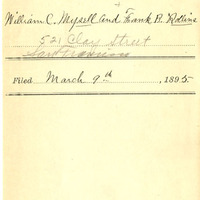 William C. Mysell and Frank B. Rollins
521 Clay Street
San Francisco
Filed March 9th, 1895.